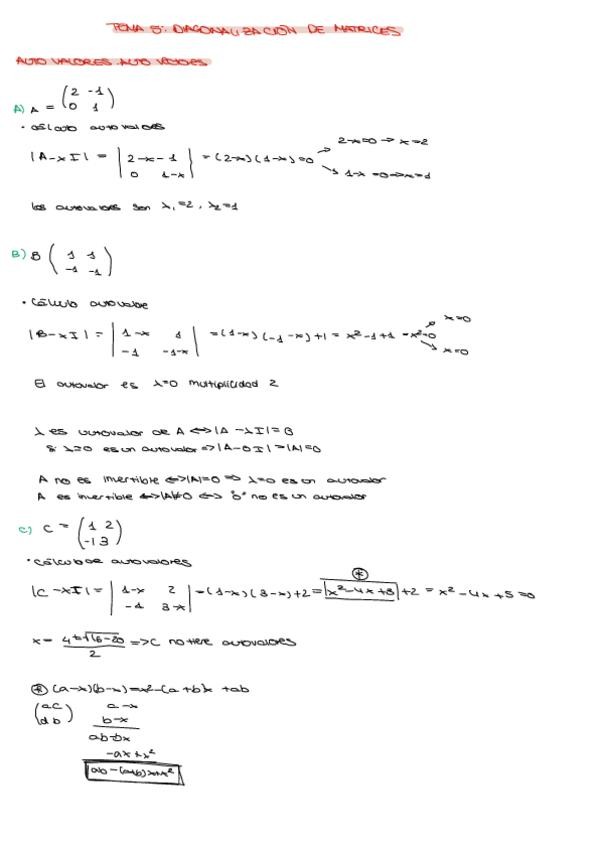 TEMA 5: DIAGONALIZACIÓN DE MATRICES
AUTO VALORES. AUTO VECTORES
A) A = (2 -1 / 0 1)
• cálculo autovalores
|A-xI| = |2-x -1 / 0 1-x| = (2-x)(1-x)=0 → 2-x=0 → x=2
↘ 1-x=0 → x=1
los autovalores son λ₁=2, λ₂=1
B) B (1 1 / -1 -1)
• cálculo autovalor
|B-xI| = |1-x 1 / -1 -1-x| = (1-x)(-1-x)+1 = x²-1+1 = x²=0 ↗ x=0
↘ x=0
El autovalor es λ=0 multiplicidad 2
λ es autovalor de A ⟺ |A-λI|=0
Si λ=0 es un autovalor ⟹ |A-0I|=|A|=0
A no es invertible ⟺ |A|=0 ⟹ λ=0 es un autovalor
A es invertible ⟺ |A|≠0 ⟺ "0" no es un autovalor
C) C = (1 2 / -1 3)
• cálculo de autovalores
|C-xI| = |1-x 2 / -1 3-x| = (1-x)(3-x)+2 = x²-4x+3 +2 = x²-4x+5=0
x = 4±√16-20 / 2 ⟹ C no tiene autovalores
* (a-x)(b-x)=x²-(a+b)x+ab
(a c / d b) a-x
b-x
ab-bx
-ax+x²
ab-(a+b)x+x²